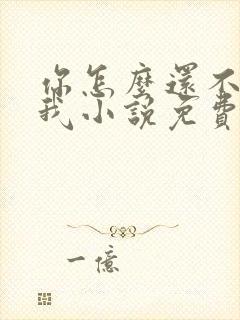 你怎麼還不
我小說免費
一億